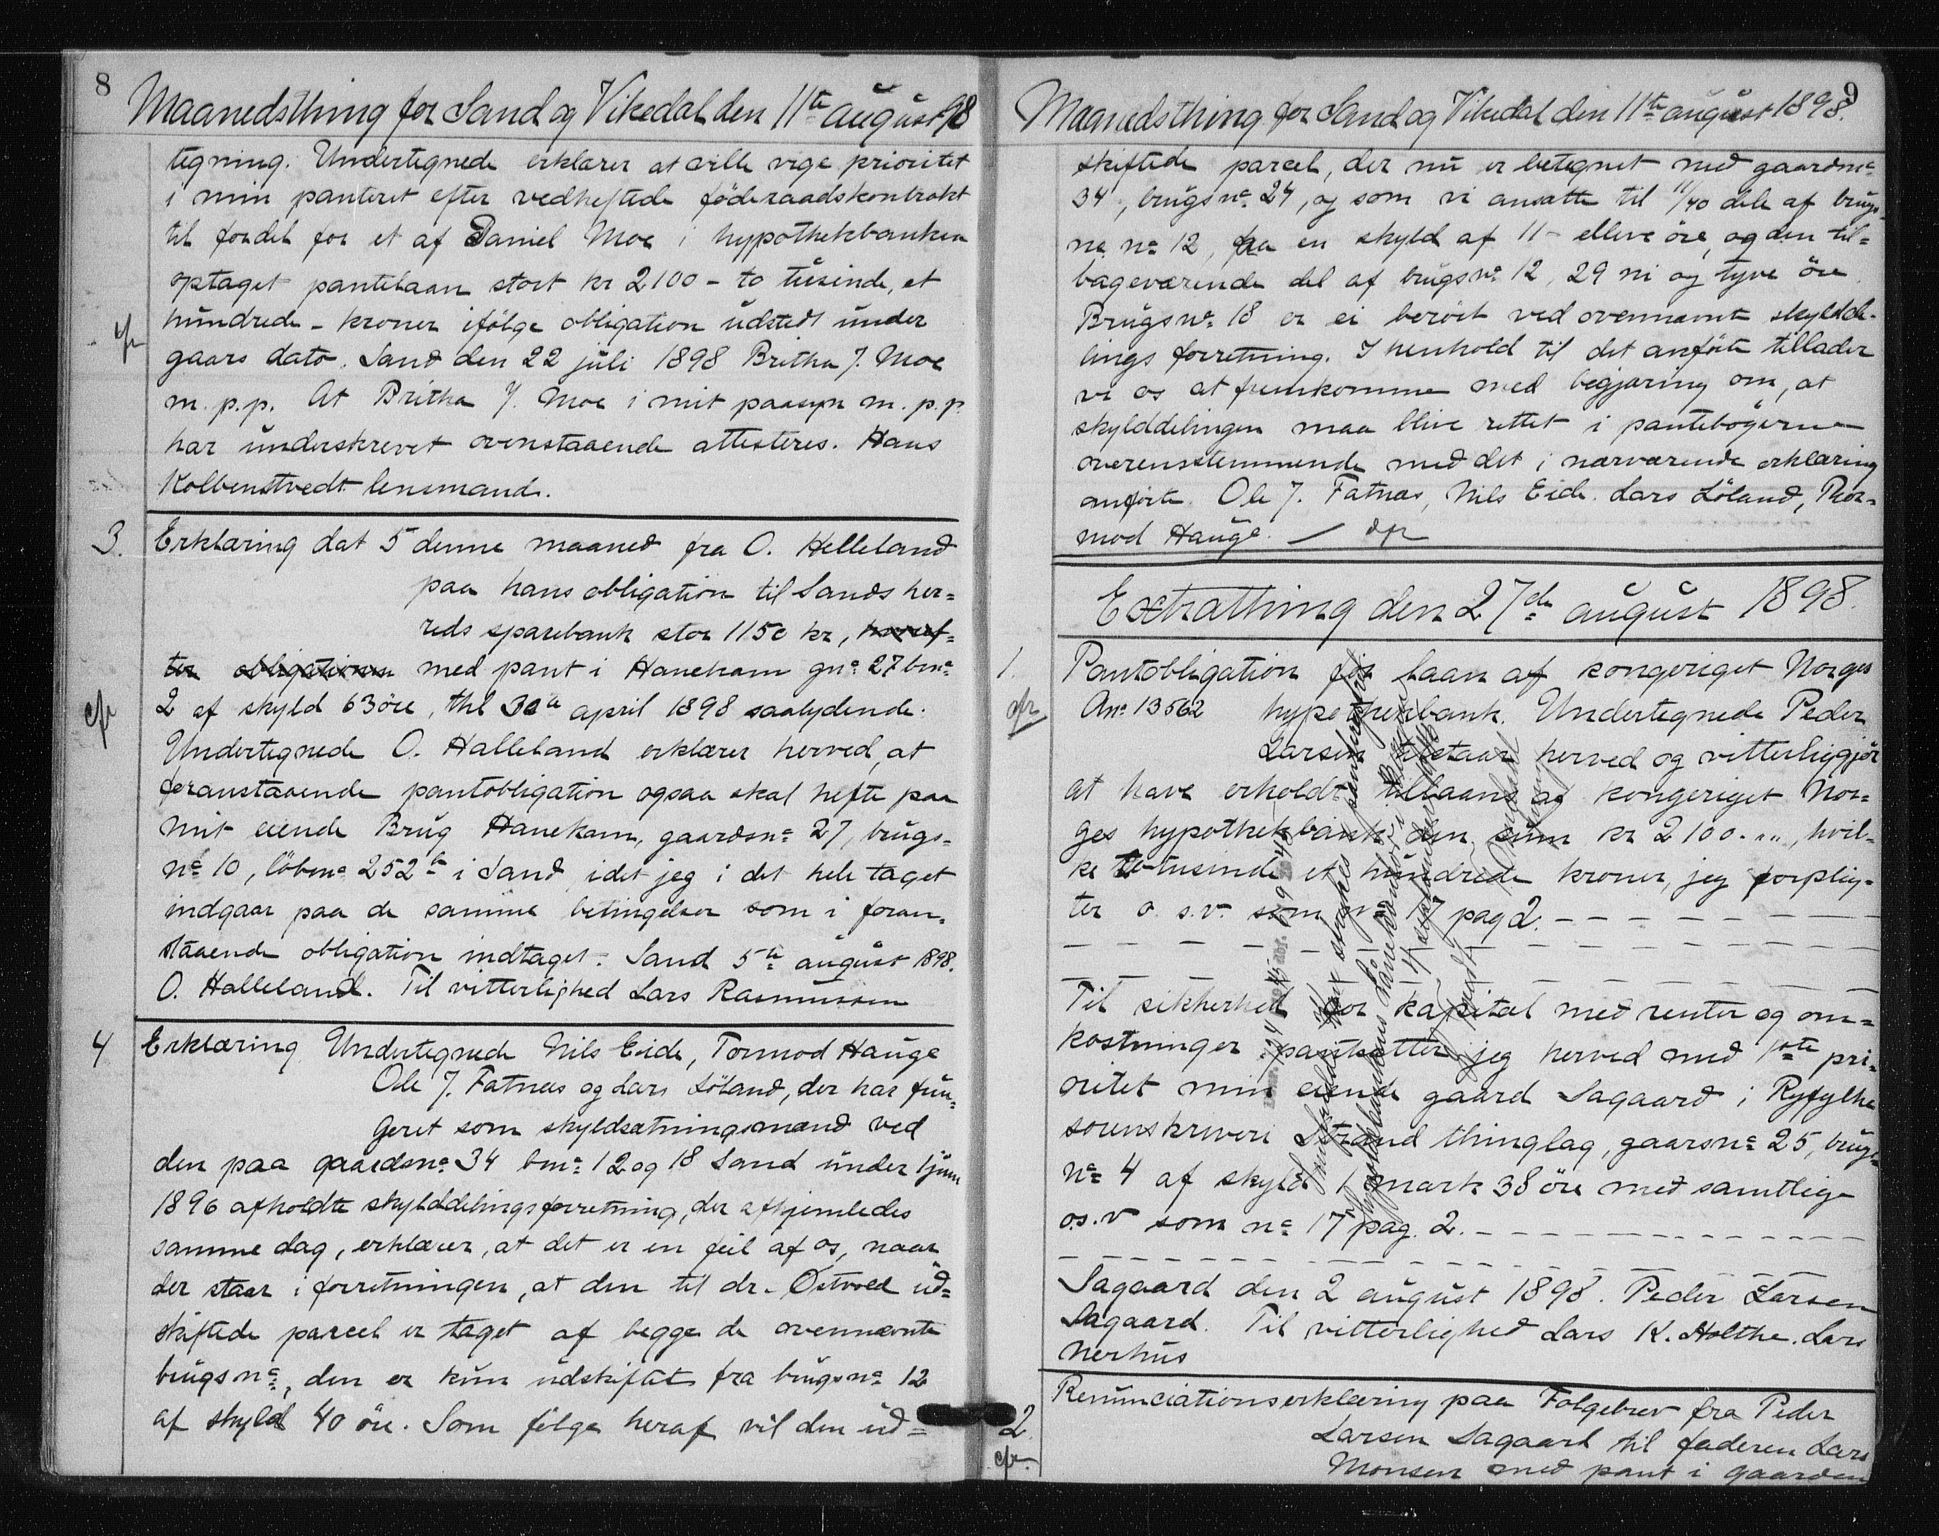 8
Maanedsthing for Sand og Vikedal den 11te august 98
tegning. Undertegnede erklærer at ville vige prioritet
i min panteret efter vedheftede föderaadskontrakt
til fordel for et af Daniel Moe i hypothekbanken
optaget pantelaan stort kr 2100 - to tusinde, et
hundrede - kroner ifölge obligation udstedt under
gaars dato. Sand den 22 juli 1898 Britha J. Moe
m. p. p. At Britha J. Moe i mit paasyn m. p. p.
har underskrevet ovenstaaende attesteres. Hans
Kolbenstvedt lensmand.
3. Erklæring dat 5 denne maaned fra O. Helleland
paa hans obligation til Sands her=
reds sparebank stor 1150 kr,
med pant i Hanekam gno 27 bno
2 af skyld 63 öre, thl 30te april 1898 saalydende.
Undertegnede O. Halleland erklærer herved, at
foranstaaende pantobligation ogsaa skal hefte paa
mit eiende Brug Hanekam, gaardsno 27, brugs-
no 10, löbeno 252 b i Sand, idet jeg i det hele taget
indgaar paa de samme betingelser som i foran-
staaende obligation indtaget. Sand 5te august 1898.
O. Halleland. Til vitterlighed Lars Rasmussen
4 Erklæring Undertegnede Nils Eide, Tormod Hauge
Ole J. Fatnes og Lars Löland, der har fun=
geret som skyldsætningsmænd ved
den paa gaardsno 34 bno 12 og 18 Sand under 1 juni
1896 afholdte skylddelingsforretning, der afhjemledes
samme dag, erklærer, at det er en feil af os, naar
der staar i forretningen, at den til dr. Östvold ud=
skiftede parcel er taget af begge de ovennævnte
brugsno, den er kun udskiftet fra brugsno 12
af skyld 40 öre. Som fölge heraf vil den ud=
9
Maanedsthing for Sand og Vikedal den 11te august 1898.
skiftede parcel, der nu er betegnet med gaardsno
34, brugsno 24, og som vi ansatte til 11/40 dele af brugs-
no 12, faa en skyld af 11 - elleve öre, og den til=
bageværende del af brugsno 12, 29 ni og tyve öre
Brugsno 18 er ei berört ved ovennævnt skyldde-
lings forretning. I henhold til det anförte tillader
vi os at fremkomme med begjæring om, at
skylddelingen maa blive rettet i pantebögerne
overensstemmende med det i nærværende erklæring
anförte. Ole J. Fatnes, Nils Eide. Lars Löland, Thor-
mod Hauge.
Extrathing den 27de august 1898.
1. Pantobligation for laan af kongeriget Norges
Ano 13562 hypothekbank. Undertegnede Peder
Larsen tilstaar herved og vitterliggjör
at have erholdt tillaans af kongeriget Nor-
ges hypothekbank den sum kr 2100. „„, hvil-
ke to tusinde et hundrede kroner, jeg forplig-
ter o. s. v. som no 17 pag 2.
Til sikkerhed for kapital med renter og om=
kostninger pantsætter jeg herved med 1ste pri-
oritet min eiende gaard Sagaard i Ryfylke
sorenskriveri Strand thinglag, gaarsno 25, brugs
no 4 af skyld 1 mark 38 öre med samtlige
o.s.v som no 17 pag. 2.
Sagaard den 2 august 1898. Peder Larsen
Sagaard. Til vitterlighed Lars K. Holthe. Lars
Nerhus
2. Renunciationserklæring paa Fölgebrev fra Peder
Larsen Sagaard til faderen Lars
Monsen med pant i gaarden